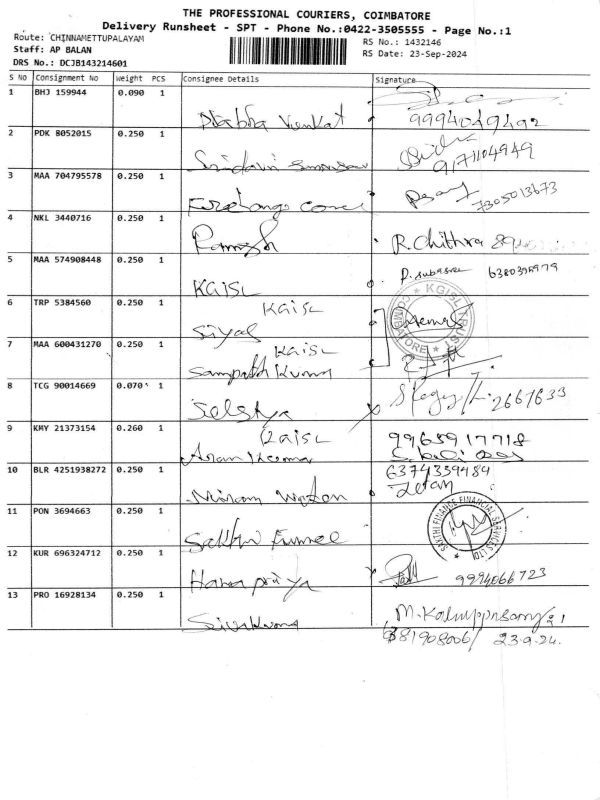 THE PROFESSIONAL COURIERS, COIMBATORE
Delivery Runsheet - SPT - Phone No.:0422-3505555 - Page No.:1
Route: CHINNAMETTUPALAYAM
RS No.: 1432146
Staff: AP BALAN
RS Date: 23-Sep-2024
DRS No.: DCJB143214601
S No Consignment No Weight PCS Consignee Details Signature
1 BHJ 159944 0.090 1
Venkat 9994049492
2 PDK 8052015 0.250 1
9171104949
3 MAA 704795578 0.250 1
7305013673
4 NKL 3440716 0.250 1
Ramesh R. Chithra
5 MAA 574908448 0.250 1
P. Subasree
KGISL
6 TRP 5384560 0.250 1
KGISL
KGISL TRUST COIMBATORE
7 MAA 600431270 0.250 1
KGISL
Sampath Kumar
8 TCG 90014669 0.070 1
2667633
9 KMY 21373154 0.260 1
9965917718
Arun Kumar
10 BLR 4251938272 0.250 1
6374339484
11 PON 3694663 0.250 1
SAKTHI FINANCE FINANCIAL SERVICES LTD
12 KUR 696324712 0.250 1
Haripriya 9994066723
13 PRO 16928134 0.250 1
Sivakumar
23.9.24.